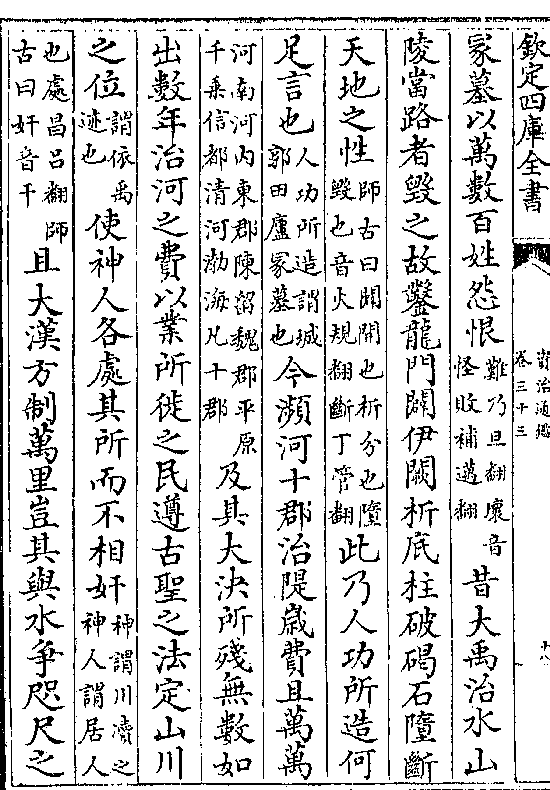 欽定四庫全書
資治通鑑
卷三十三
十八
冡墓以萬數百姓怨恨難乃旦翻壞音
怪敗補邁翻昔大禹治水山
陵當路者毁之故鑿龍門闢伊闕析底柱破碣石墮斷
天地之性師古曰闢開也析分也墮
毁也音火規翻斷丁管翻此乃人功所造何
足言也人功所造謂城
郭田廬冡墓也今瀕河十郡治隄歳費且萬萬
河南河内東郡陳留魏郡平原
千乗信都清河勃海凡十郡及其大決所殘無數如
出數年治河之費以業所徙之民遵古聖之法定山川
之位謂依禹
迹也使神人各處其所而不相奸神謂川瀆之
神人謂居人
也處昌吕翻師
古曰奸音干且大漢方制萬里豈其與水爭咫尺之